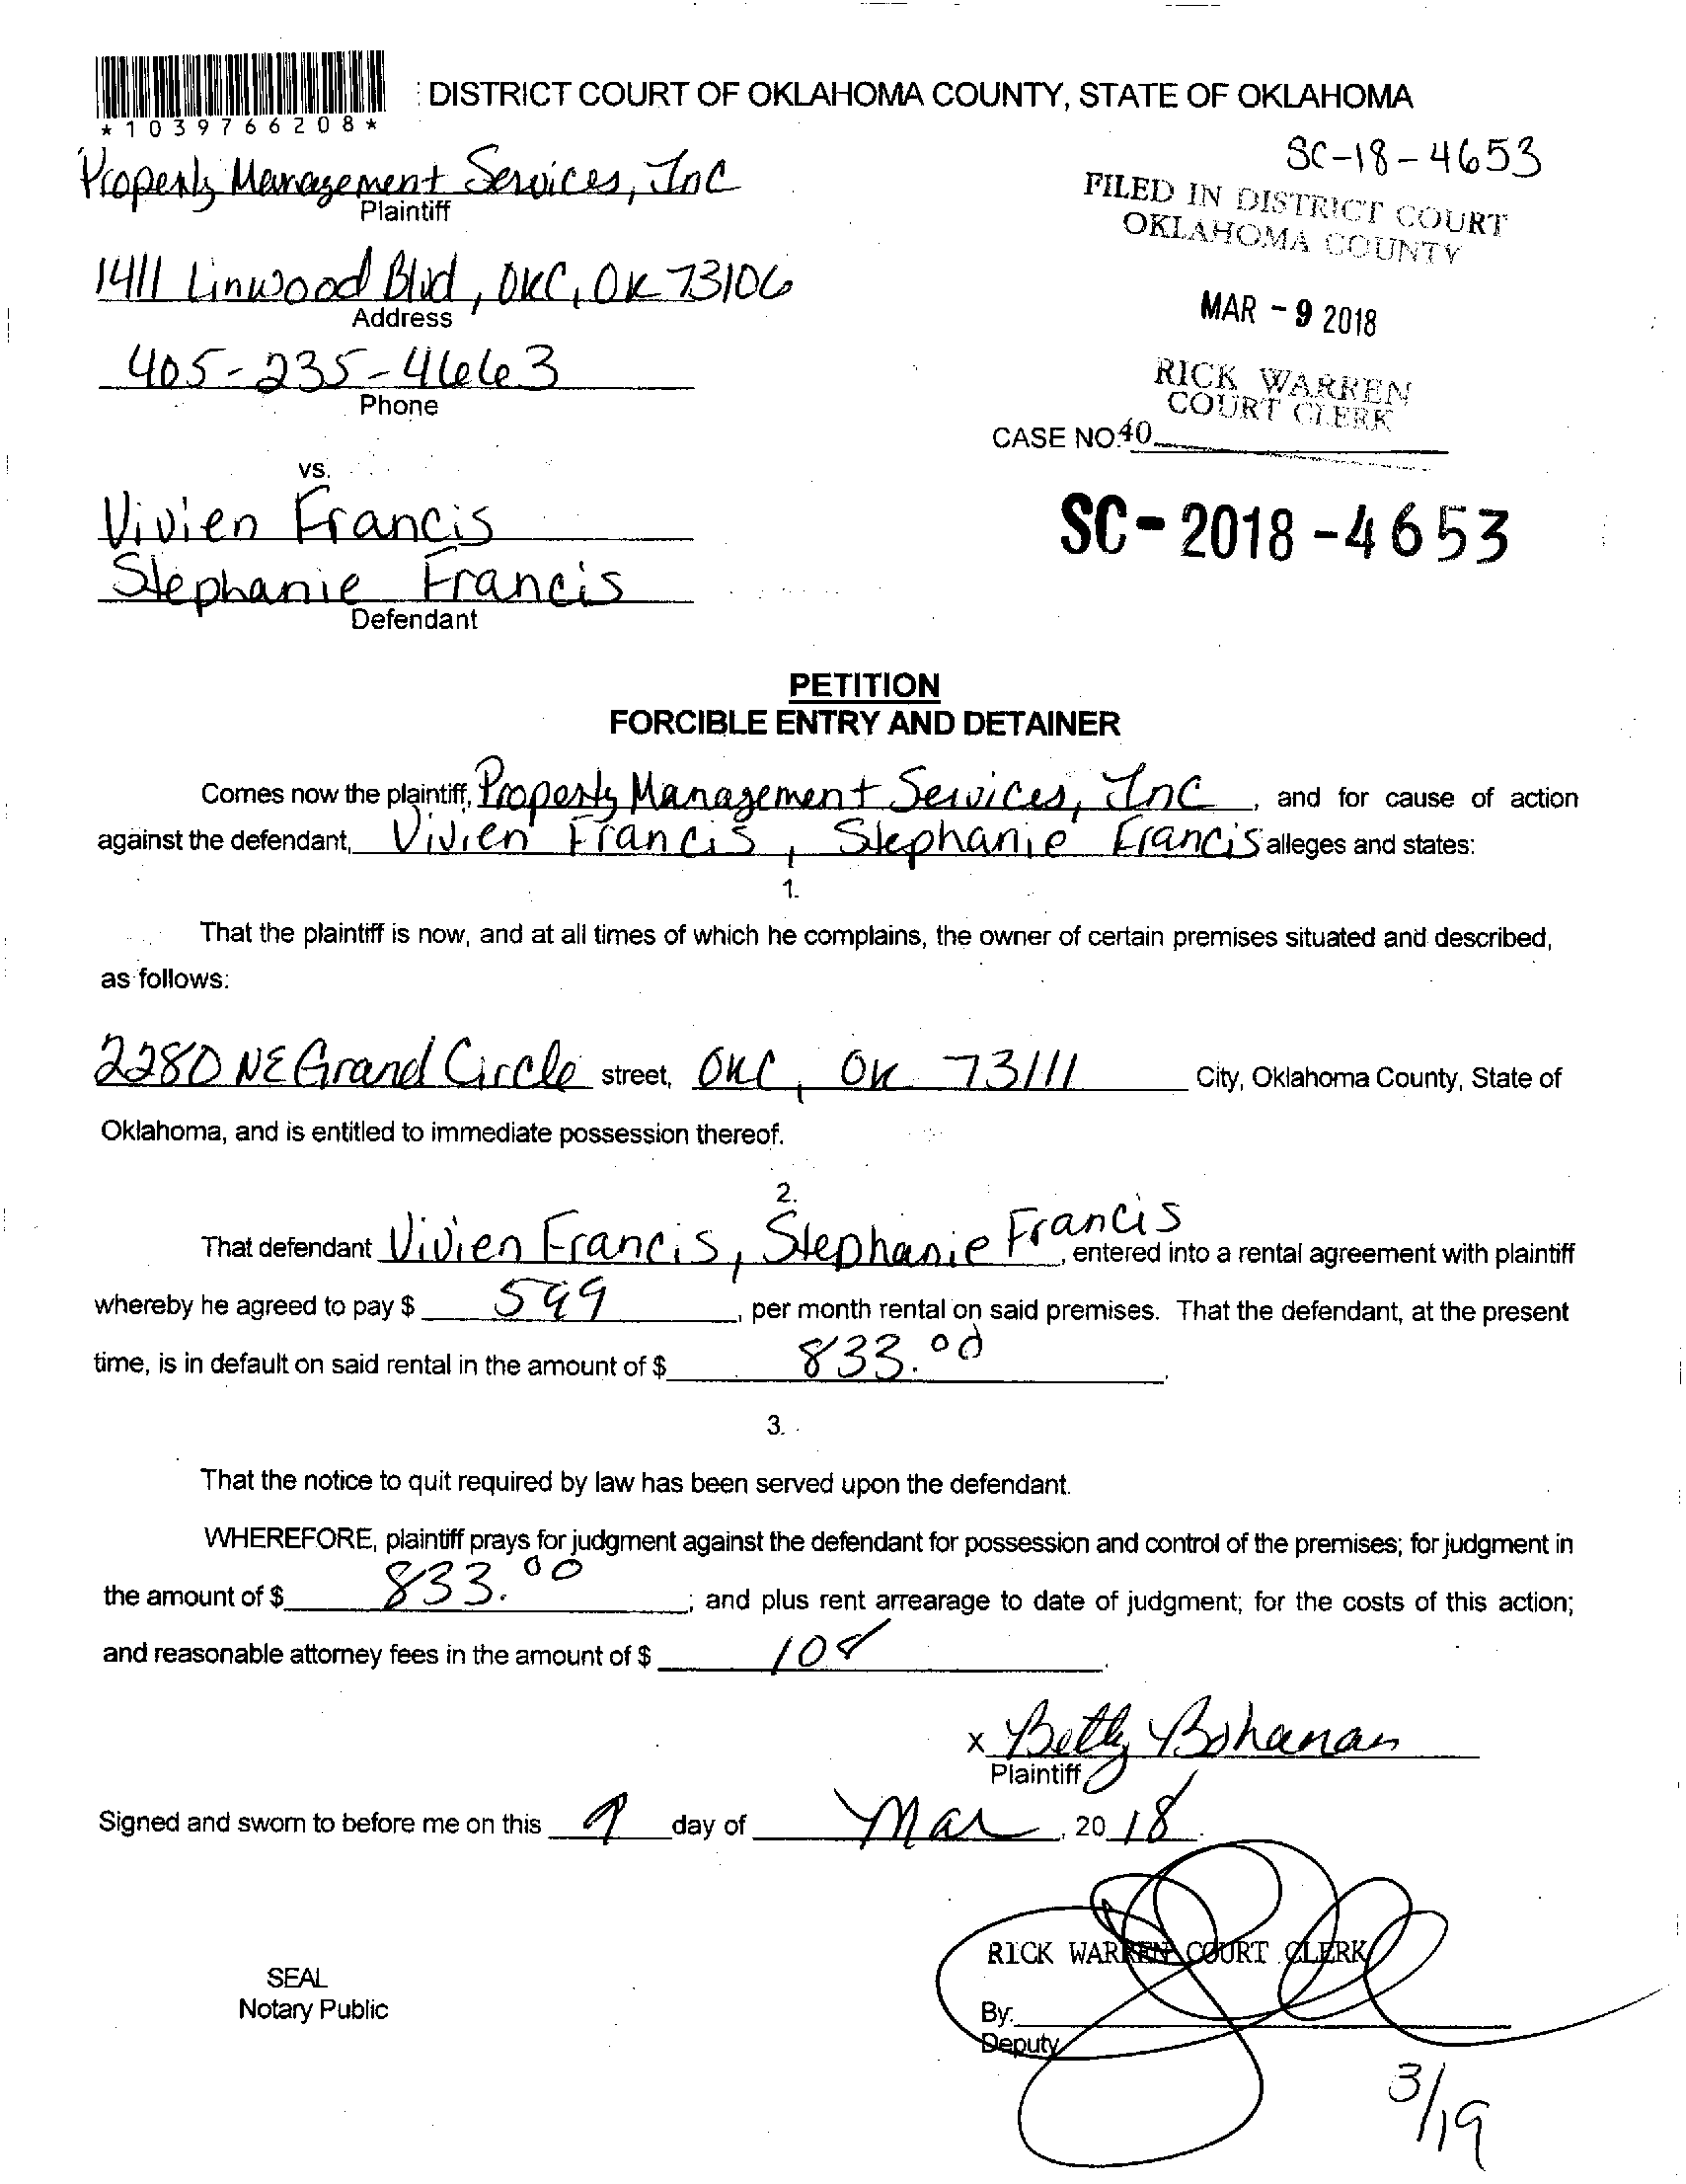 : DISTRICT COURT OF OKLAHOMA COUNTY, STATE OF OKLAHOMA
*1039766208*
SC-18-4653
Property Management Services, Inc
Plaintiff
FILED IN DISTRICT COURT
OKLAHOMA COUNTY
1411 Linwood Blvd, OKC, OK 73106
Address
MAR - 9 2018
405-235-4663
Phone
RICK WARREN
COURT CLERK
CASE NO. 40
vs.
Vivien Francis
Stephanie Francis
Defendant
SC-2018-4653
PETITION
FORCIBLE ENTRY AND DETAINER
Comes now the plaintiff, Property Management Services, Inc, and for cause of action
against the defendant, Vivien Francis, Stephanie Francis alleges and states:
1.
That the plaintiff is now, and at all times of which he complains, the owner of certain premises situated and described,
as follows:
2280 NE Grand Circle street, OKC, OK 73111 City, Oklahoma County, State of
Oklahoma, and is entitled to immediate possession thereof.
2.
That defendant Vivien Francis, Stephanie Francis, entered into a rental agreement with plaintiff
whereby he agreed to pay $ 599, per month rental on said premises. That the defendant, at the present
time, is in default on said rental in the amount of $ 833.00.
3.
That the notice to quit required by law has been served upon the defendant.
WHEREFORE, plaintiff prays for judgment against the defendant for possession and control of the premises; for judgment in
the amount of $ 833.00; and plus rent arrearage to date of judgment; for the costs of this action;
and reasonable attorney fees in the amount of $
x Betty Bohanan
Plaintiff
Signed and sworn to before me on this 9 day of Mar, 2018.
RICK WARREN COURT CLERK
SEAL
Notary Public
By:
Deputy
3/19